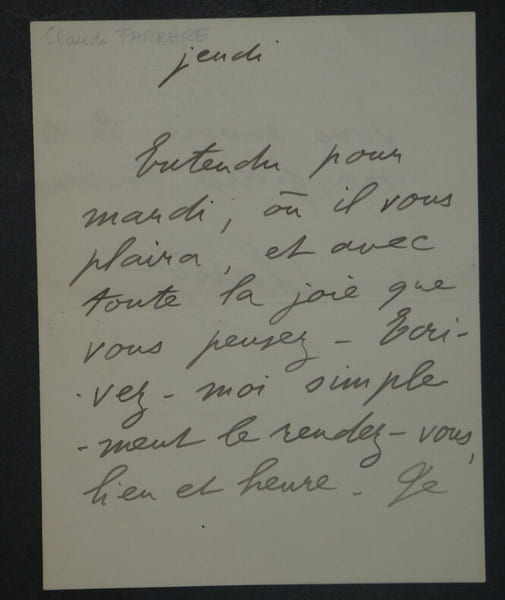 Claude FARRERE
jeudi
Entendu pour
mardi, où il vous
plaira, et avec
toute la joie que
vous pensez - Ecri-
-vez-moi simple
-ment le rendez-vous,
lieu et heure - Je